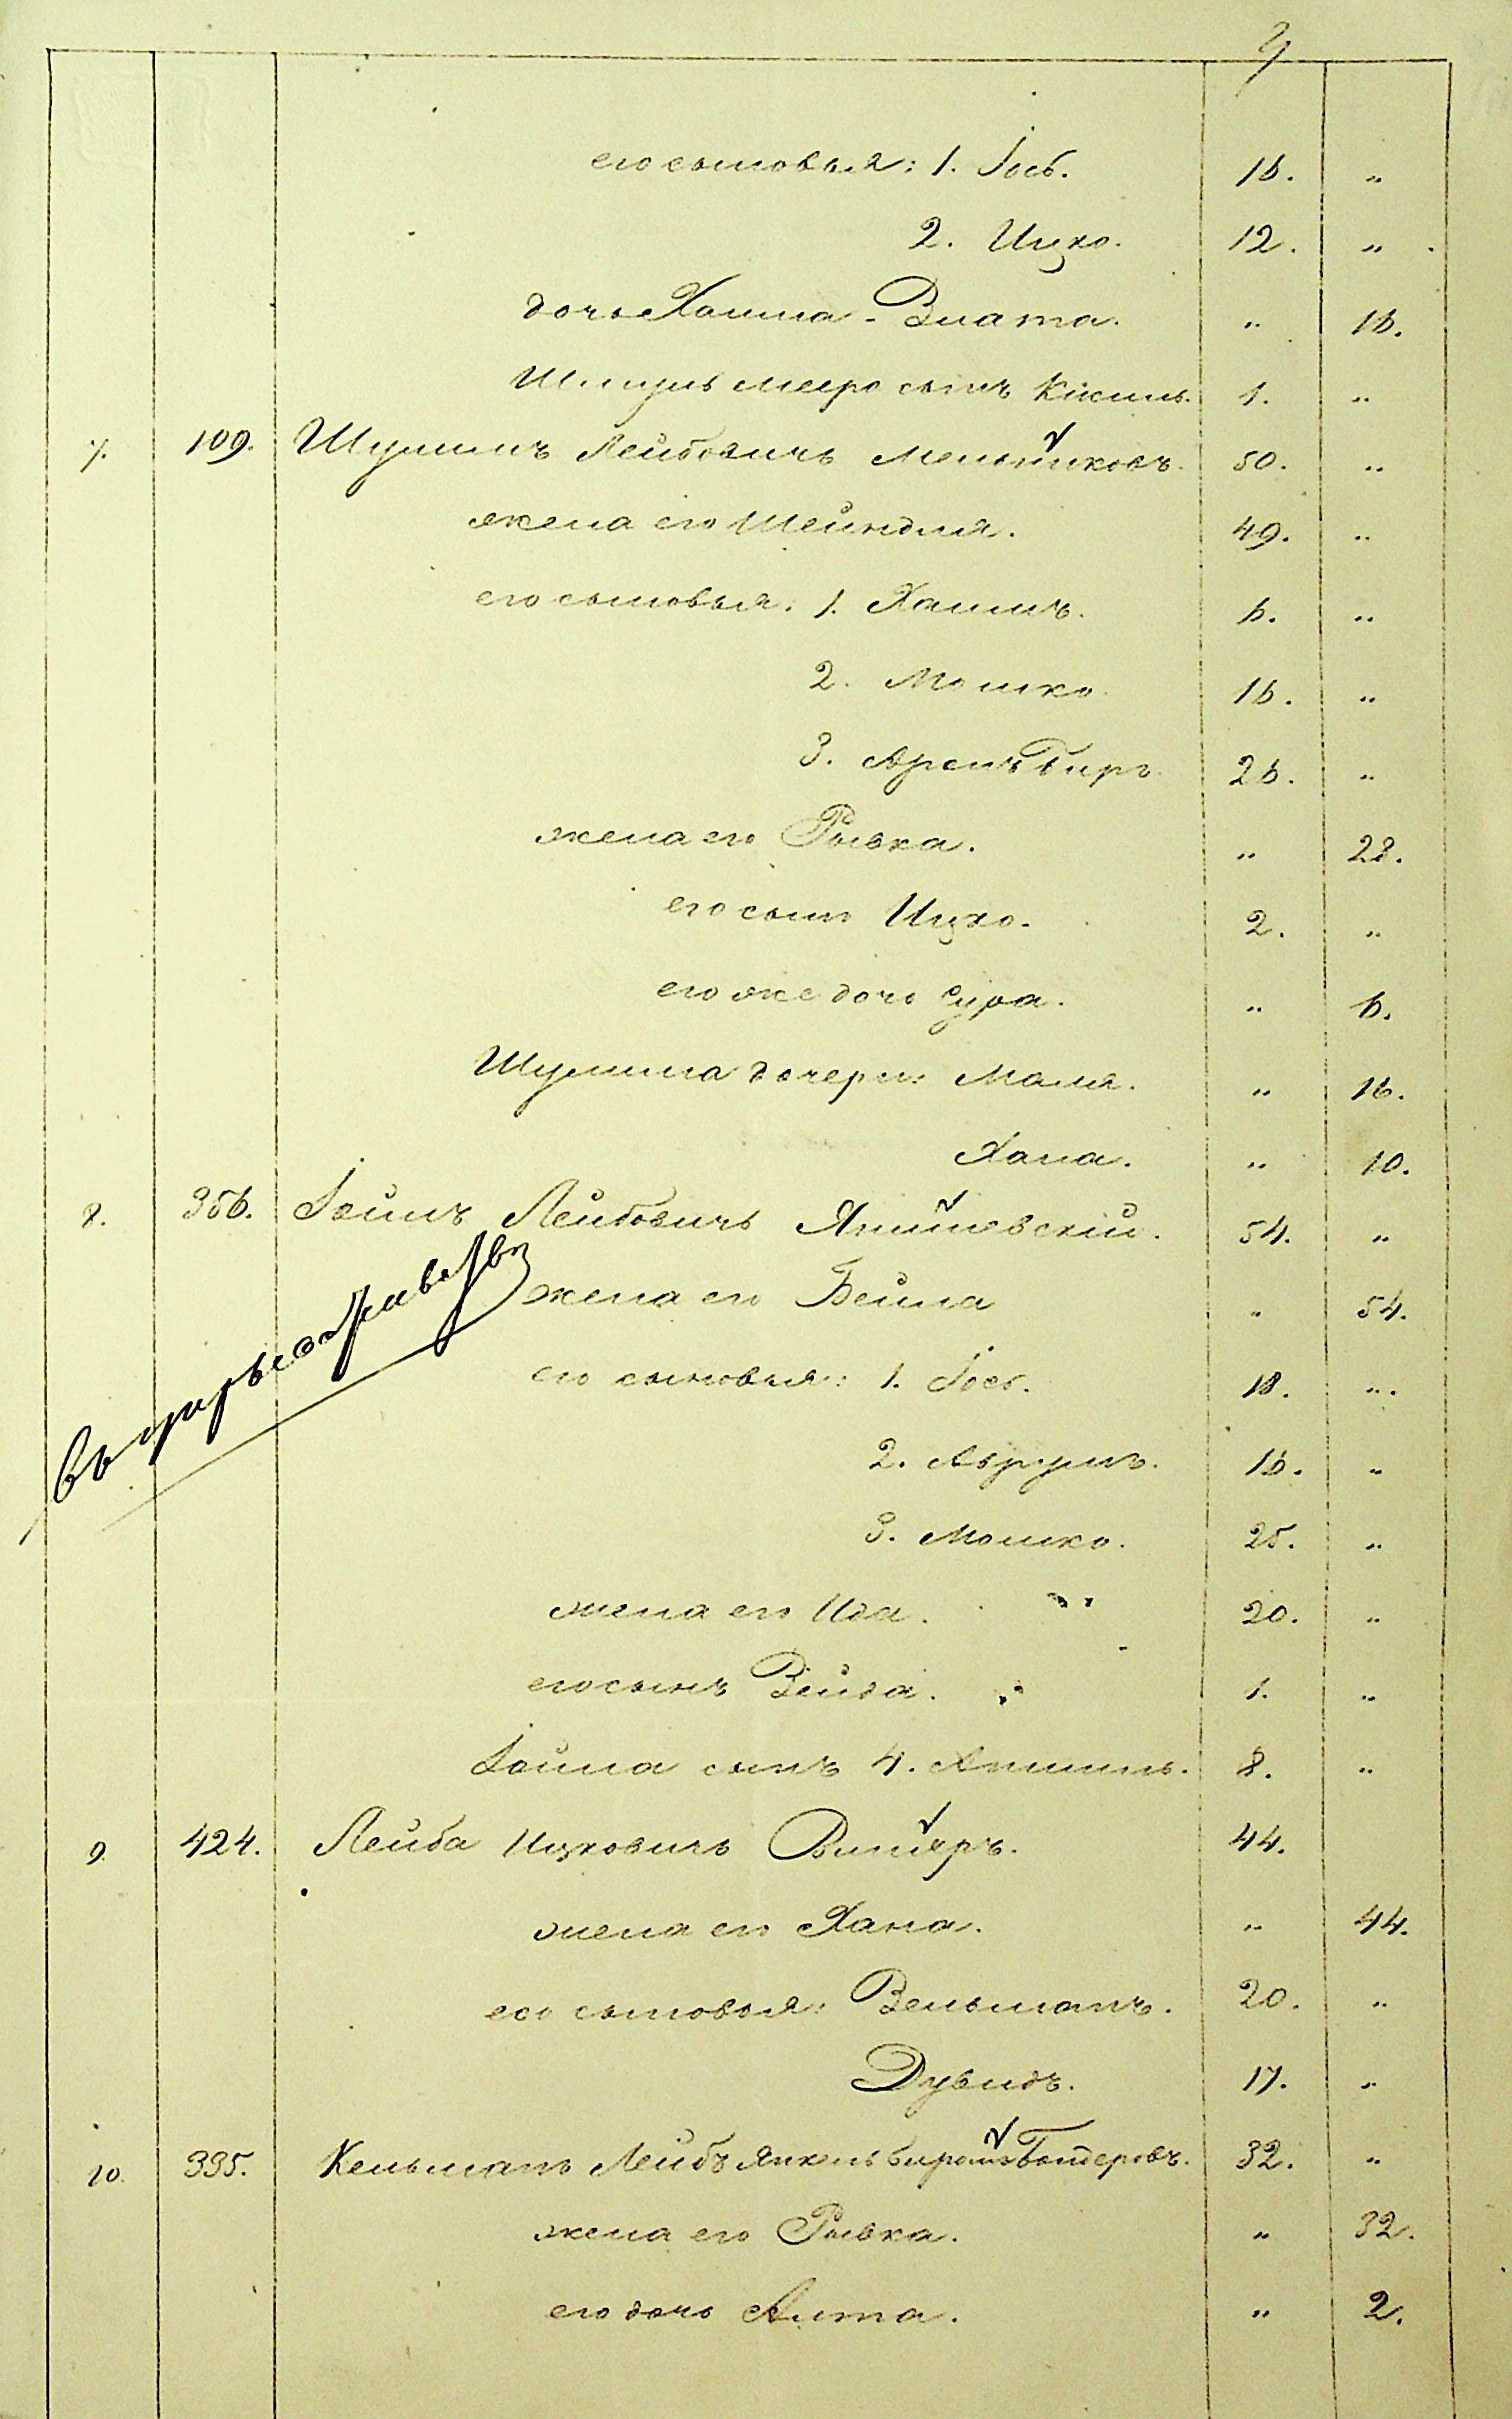 9
его сыновья: 1. Іосъ. 16. "
2. Ицко. 12. "
дочь Хаима-Злата. " 16.
Шмуль Меера сынъ Кисиль. 1. "
7. 109. Шулимъ Лейбовичъ Мельниковъ. 50. "
жена его Шейндля. 49. "
его сыновья: 1. Хаимъ. 6. "
2. Мошко. 16. "
3. Аренъ Биръ. 26. "
жена его Рывка. " 28.
его сынъ Ицко. 2. "
его же дочь Сура. " 6.
Шулима дочери: Маля. " 16.
Хана. " 10.
8. 356. Іойнъ Лейбовичъ Янишевскій. 54. "
жена его Бейла " 54.
его сыновья: 1. Іосъ. 18. "
2. Аврумъ. 16. "
3. Мошко. 25. "
жена его Ида. 20. "
его сынъ Зейда. 1. "
Іойна сынъ 4. Аншиль. 8. "
9. 424. Лейба Ицковичъ Виняръ. 44.
жена его Хана. " 44.
его сыновья: Зельманъ. 20. "
Дувидъ. 17. "
10. 335. Кельманъ Лейбъ Янкель Бондеровъ. 32. "
жена его Рывка. " 32.
его дочь Алта. " 2.